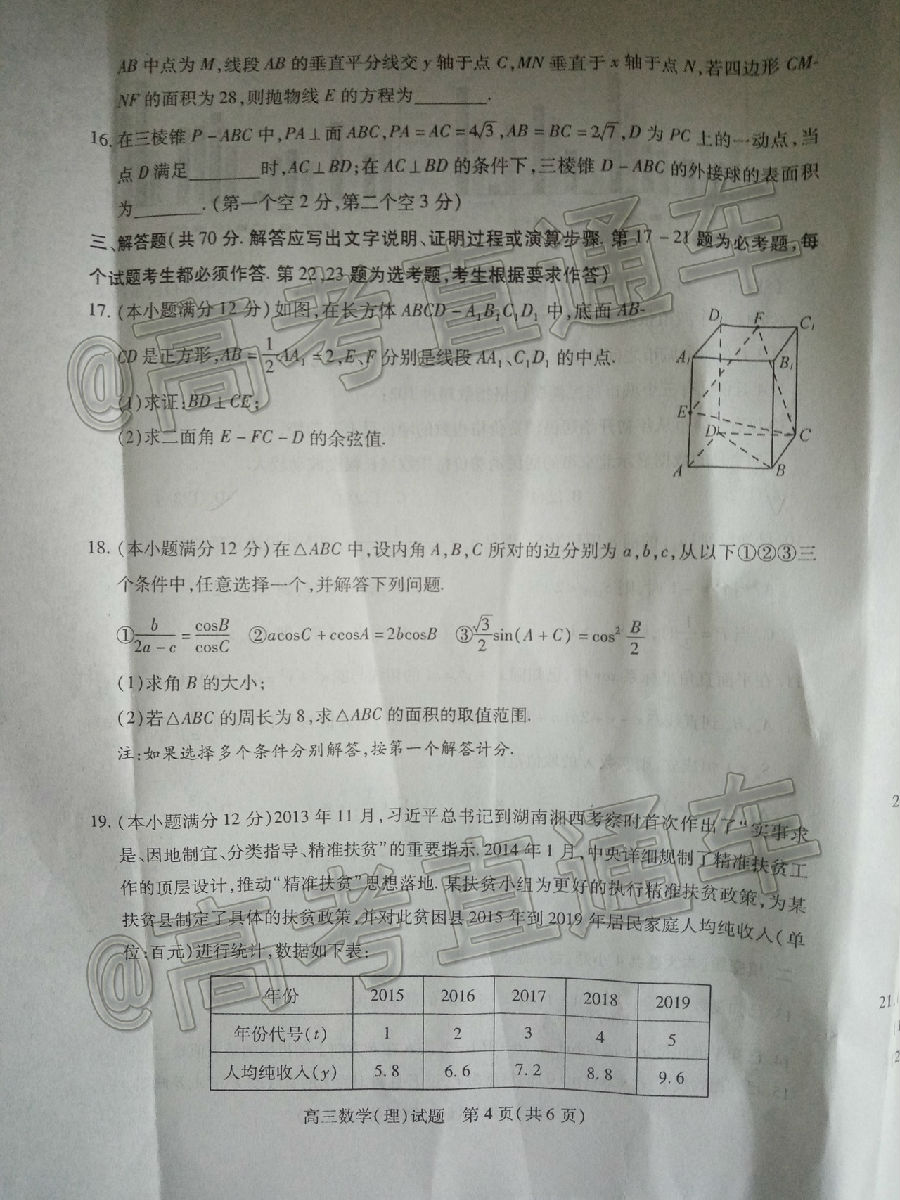 AB中点为M,线段AB的垂直平分线交y轴于点C,MN垂直于x轴于点N,若四边形CM-
NF的面积为28,则抛物线E的方程为________.
16.在三棱锥P-ABC中,PA⊥面ABC,PA=AC=4√3,AB=BC=2√7,D为PC上的一动点,当
点D满足________时,AC⊥BD;在AC⊥BD的条件下,三棱锥D-ABC的外接球的表面积
为________.(第一个空2分,第二个空3分)
三、解答题(共70分.解答应写出文字说明、证明过程或演算步骤.第17-21题为必考题,每
个试题考生都必须作答.第22、23题为选考题,考生根据要求作答)
17.(本小题满分12分)如图,在长方体ABCD-A₁B₁C₁D₁中,底面AB-
CD是正方形,AB=1/2AA₁=2,E、F分别是线段AA₁、C₁D₁的中点.
(1)求证:BD⊥CE;
(2)求二面角E-FC-D的余弦值.
D₁ F C₁
A₁ B₁
E
D C
A B
18.(本小题满分12分)在△ABC中,设内角A,B,C所对的边分别为a,b,c,从以下①②③三
个条件中,任意选择一个,并解答下列问题.
①b/(2a-c)=cosB/cosC ②acosC+ccosA=2bcosB ③√3/2sin(A+C)=cos²B/2
(1)求角B的大小;
(2)若△ABC的周长为8,求△ABC的面积的取值范围.
注:如果选择多个条件分别解答,按第一个解答计分.
19.(本小题满分12分)2013年11月,习近平总书记到湖南湘西考察时首次作出了"实事求
是、因地制宜、分类指导、精准扶贫"的重要指示.2014年1月,中央详细规制了精准扶贫工
作的顶层设计,推动"精准扶贫"思想落地.某扶贫小组为更好的执行精准扶贫政策,为某
扶贫县制定了具体的扶贫政策,并对此贫困县2015年到2019年居民家庭人均纯收入(单
位:百元)进行统计,数据如下表:
年份 2015 2016 2017 2018 2019
年份代号(t) 1 2 3 4 5
人均纯收入(y) 5.8 6.6 7.2 8.8 9.6
高三数学(理)试题 第4页(共6页)
@高考直通车
@高考直通车
2
21.